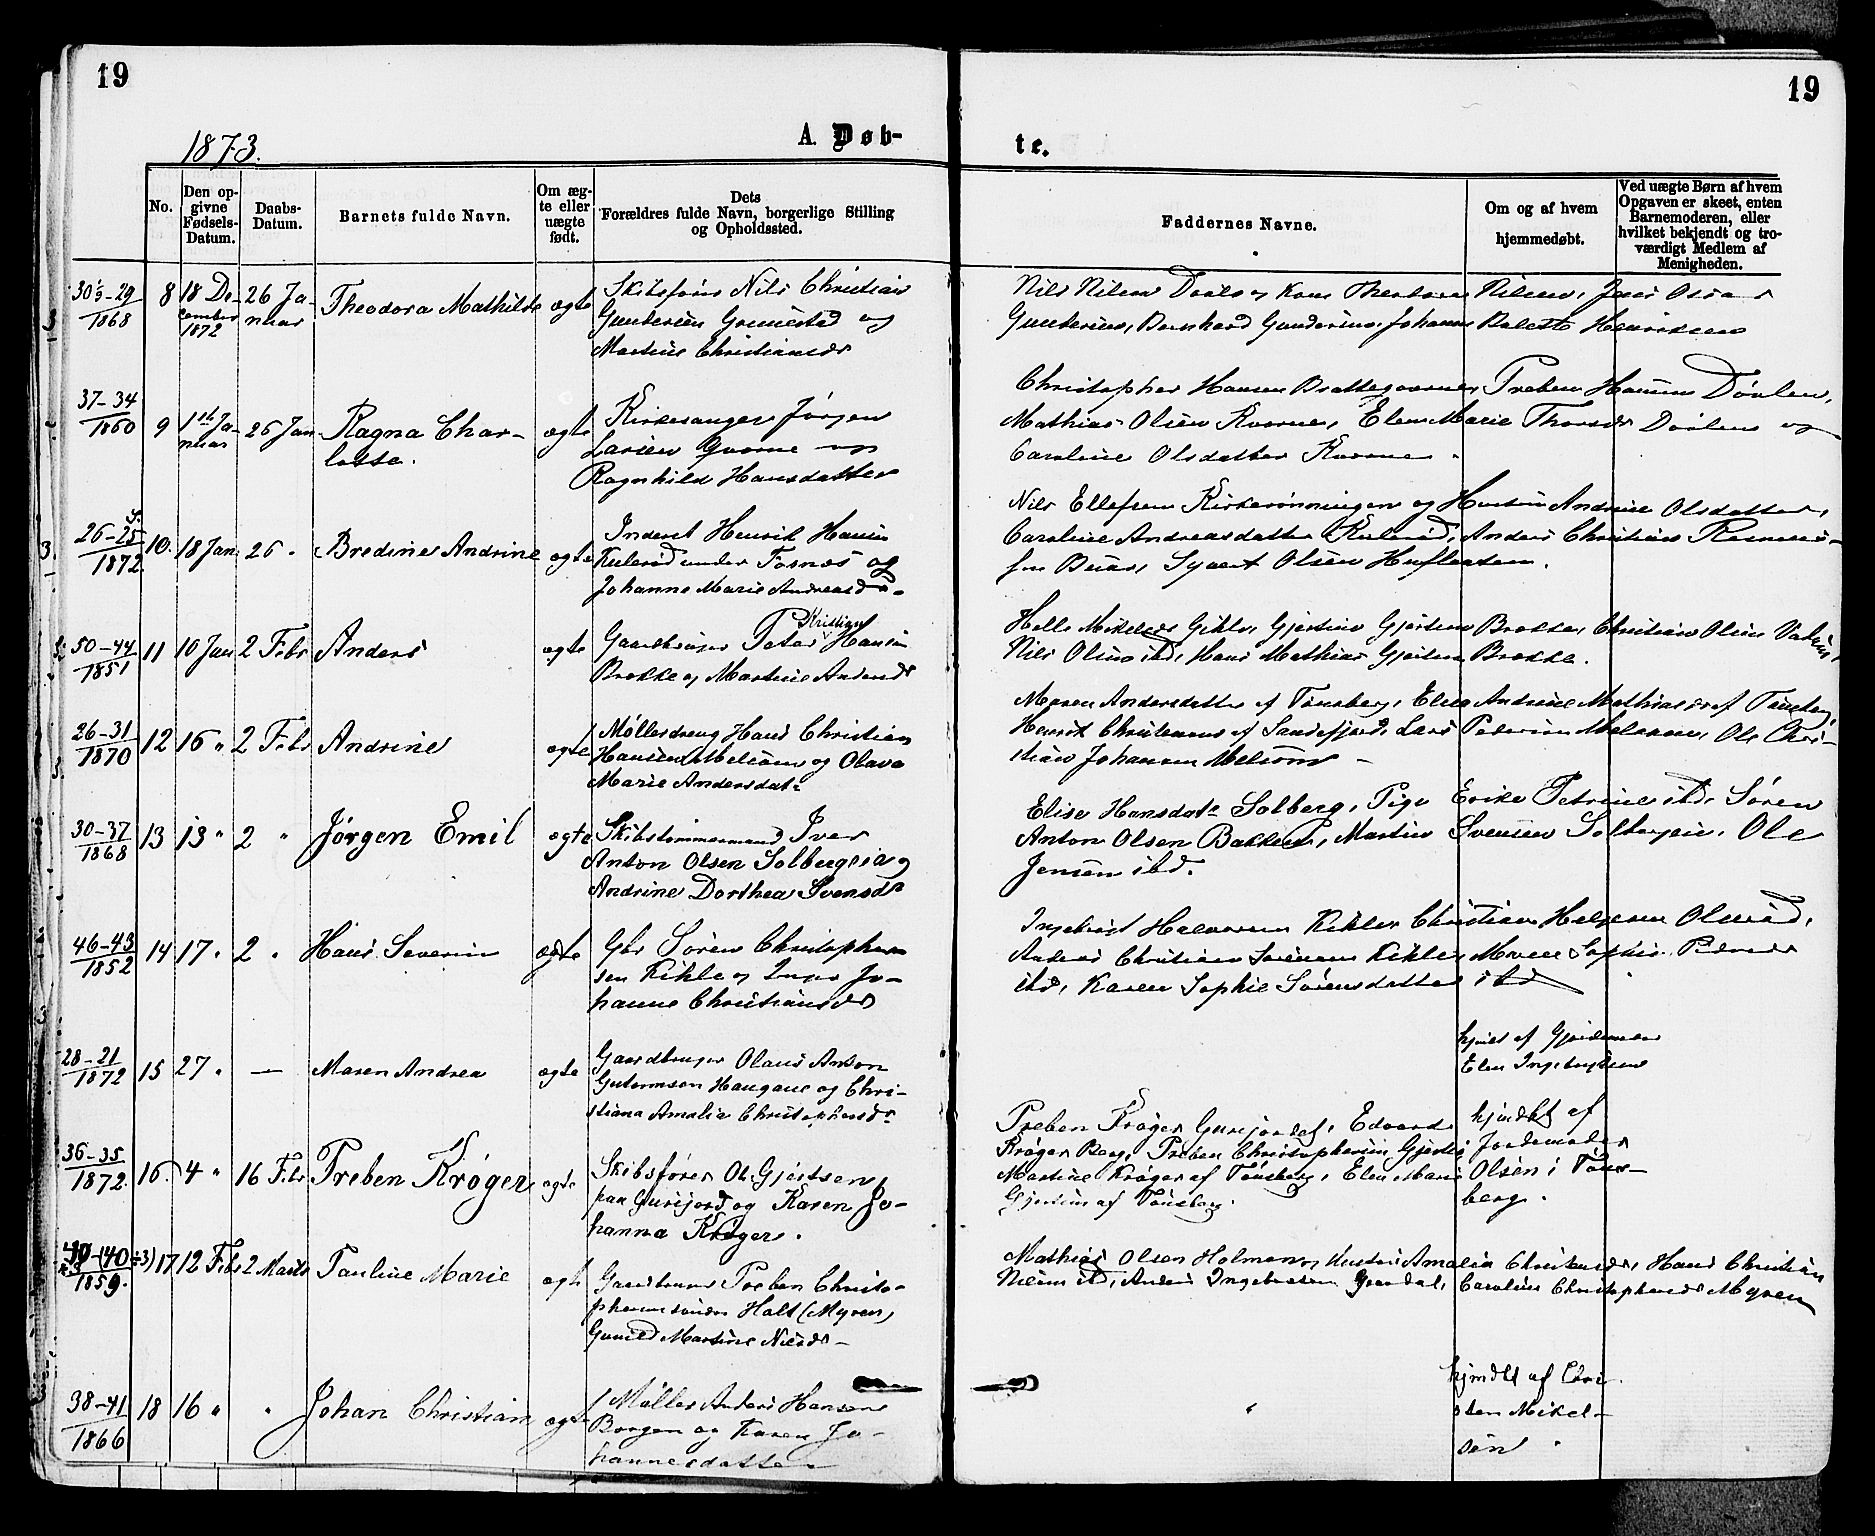 19
19
1873.
A. Døb-
te.
No.
Den op-
givne
Fødsels-
Datum.
Daabs-
Datum.
Barnets fulde Navn.
Om æg-
te eller
uægte
født.
Dets
Forældres fulde Navn, borgerlige Stilling
og Opholdssted.
Faddernes Navne.
Om og af hvem
hjemmedøbt.
Ved uægte Børn af hvem
Opgaven er skeet, enten
Barnemoderen, eller
hvilket bekjendt og tro-
værdigt Medlem af
Menigheden.
1868
8
18 De-
cember
1872
26 Ja-
nuar
Theodora Mathilde
ægte
Skibsfører Nils Christian
Gundersen Grimestad og
Martine Christiansdr
Nils Nilsen
Gundersen, Bernhard Gundersen, Johanne Henriksen
37-34
1860
9
1ste Ja-
nuar
26 Jan
Ragna Char-
lotte.
ægte
Kirkesanger Jørgen
Larsen Qvorne og
Ragnhild Hansdatter
Christopher Hansen Brattegaarne, Preben Hansen Døvlen,
Mathias Olsen Kvorne, Elen Marie Thorsdr Døvlen og
Caroline Olsdatter Kvorne.
26-25
1872
10.
18 Jan
26 "
Bredine Andrine
ægte
Inderst Henrik Hansen
Kulerød under Fosnæs og
Johanne Marie Andreasdr.
Nils Ellefsen Kirkerønningen og Hustru Andrine Olsdatter,
Caroline Andreasdatter Kulerød, Anders Christian Rasmus-
sen Syvert Olsen
50-44
1851
11
10 Jan
2 Febr
Anders
ægte
Kristian
Gaardbruger Peter Hansen
Brekke og Martine Andersdr
Helle Gjertine Gjertsen Brekke, Christian Olsen
Nils Olsen ibd, Hans Mathias Gjertsen Brekke.
26-31
1870
12
16 "
2 Febr
Andrine
ægte
Møllerdreng Hans Christian
Hansen Melsom og Olava
Marie Andersdat.
Maren Andersdatter af Tønsberg, Elise Andrine Mathiasdr af Tønsberg,
Henrik Christensen af Sandefjord, Lars Pedersen Melsom, Ole Chri-
stian Johansen Melsom
30-37
1868
13
13 "
2 "
Jørgen Emil
ægte
Skibstømmermand Iver
Anton Olsen Solbergeie og
Andrine Dorthea Svensdr
Elise Hansdatr Solberg, Pige Erike Petrine ibd, Søren
Anton Olsen Bakken, Martin Svensen Solbergeie, Ole
Jensen ibd.
46-43
1852
14
17 "
2 "
Hans Severin
ægte
Gbr Søren Christopher-
sen Kikle og Inger Jo-
hanne Christiansdr
Ingebret Halvorsen Kikle, Christian Helgesen Olsrød,
Anders Christian Sørensen Kikle, Maren Sophie Pedersdr
ibd, Karen Sophie Sørensdatter ibd
28-21
1872
15
27 "
—
Maren Andrea
ægte
Gaardbruger Olaus Anton
Guttormsen Haugane og Chri-
stiana Amalia Christophersdr
hjmdt af Gjordemoder
Elen Ingebretsen
36-35
1872
16.
4 "
16 Febr
Preben Krøger
ægte
Skibsfører Ole Gjertsen
paa Gurijord og Karen Jo-
hanna Krøger.
Preben Krøger Gurijordet, Edvard
Krøger Berg, Preben Christophersen Gjertsen,
Martine Krøger af Tønsberg, Elen Marie
Gjertsen af Tønsberg.
hjmdbt af
Jordemoder
Olsen i Tøns-
berg.
1859.
17
12 Febr
2 Marts
Pauline Marie
ægte
Gaardbruger Preben Christo-
phersen søndre Holt (Myren)
Gunild Martine Nilsdr
Mathias Olsen Holmen, Hustru Amalia Christensdr, Hans Christian
Nilsen ibd, Anders Ingebretsen Gjerdal, Caroline Christophersdr Myren
38-41
1866
18
16 "
"
Johan Christian
ægte
Møller Anders Hansen
Borgen og Karen Jo-
hannesdatter
"
hjmdbt af Chri-
sten Mikel-
sen